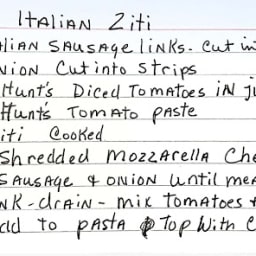 Italian Ziti
alian Sausage links. Cut in
nion Cut into strips
Hunt's Diced Tomatoes in ju
Hunt's Tomato paste
iti Cooked
Shredded Mozzarella Che
Sausage & onion until mea
nk - drain - mix tomatoes &
dd to pasta Top with c